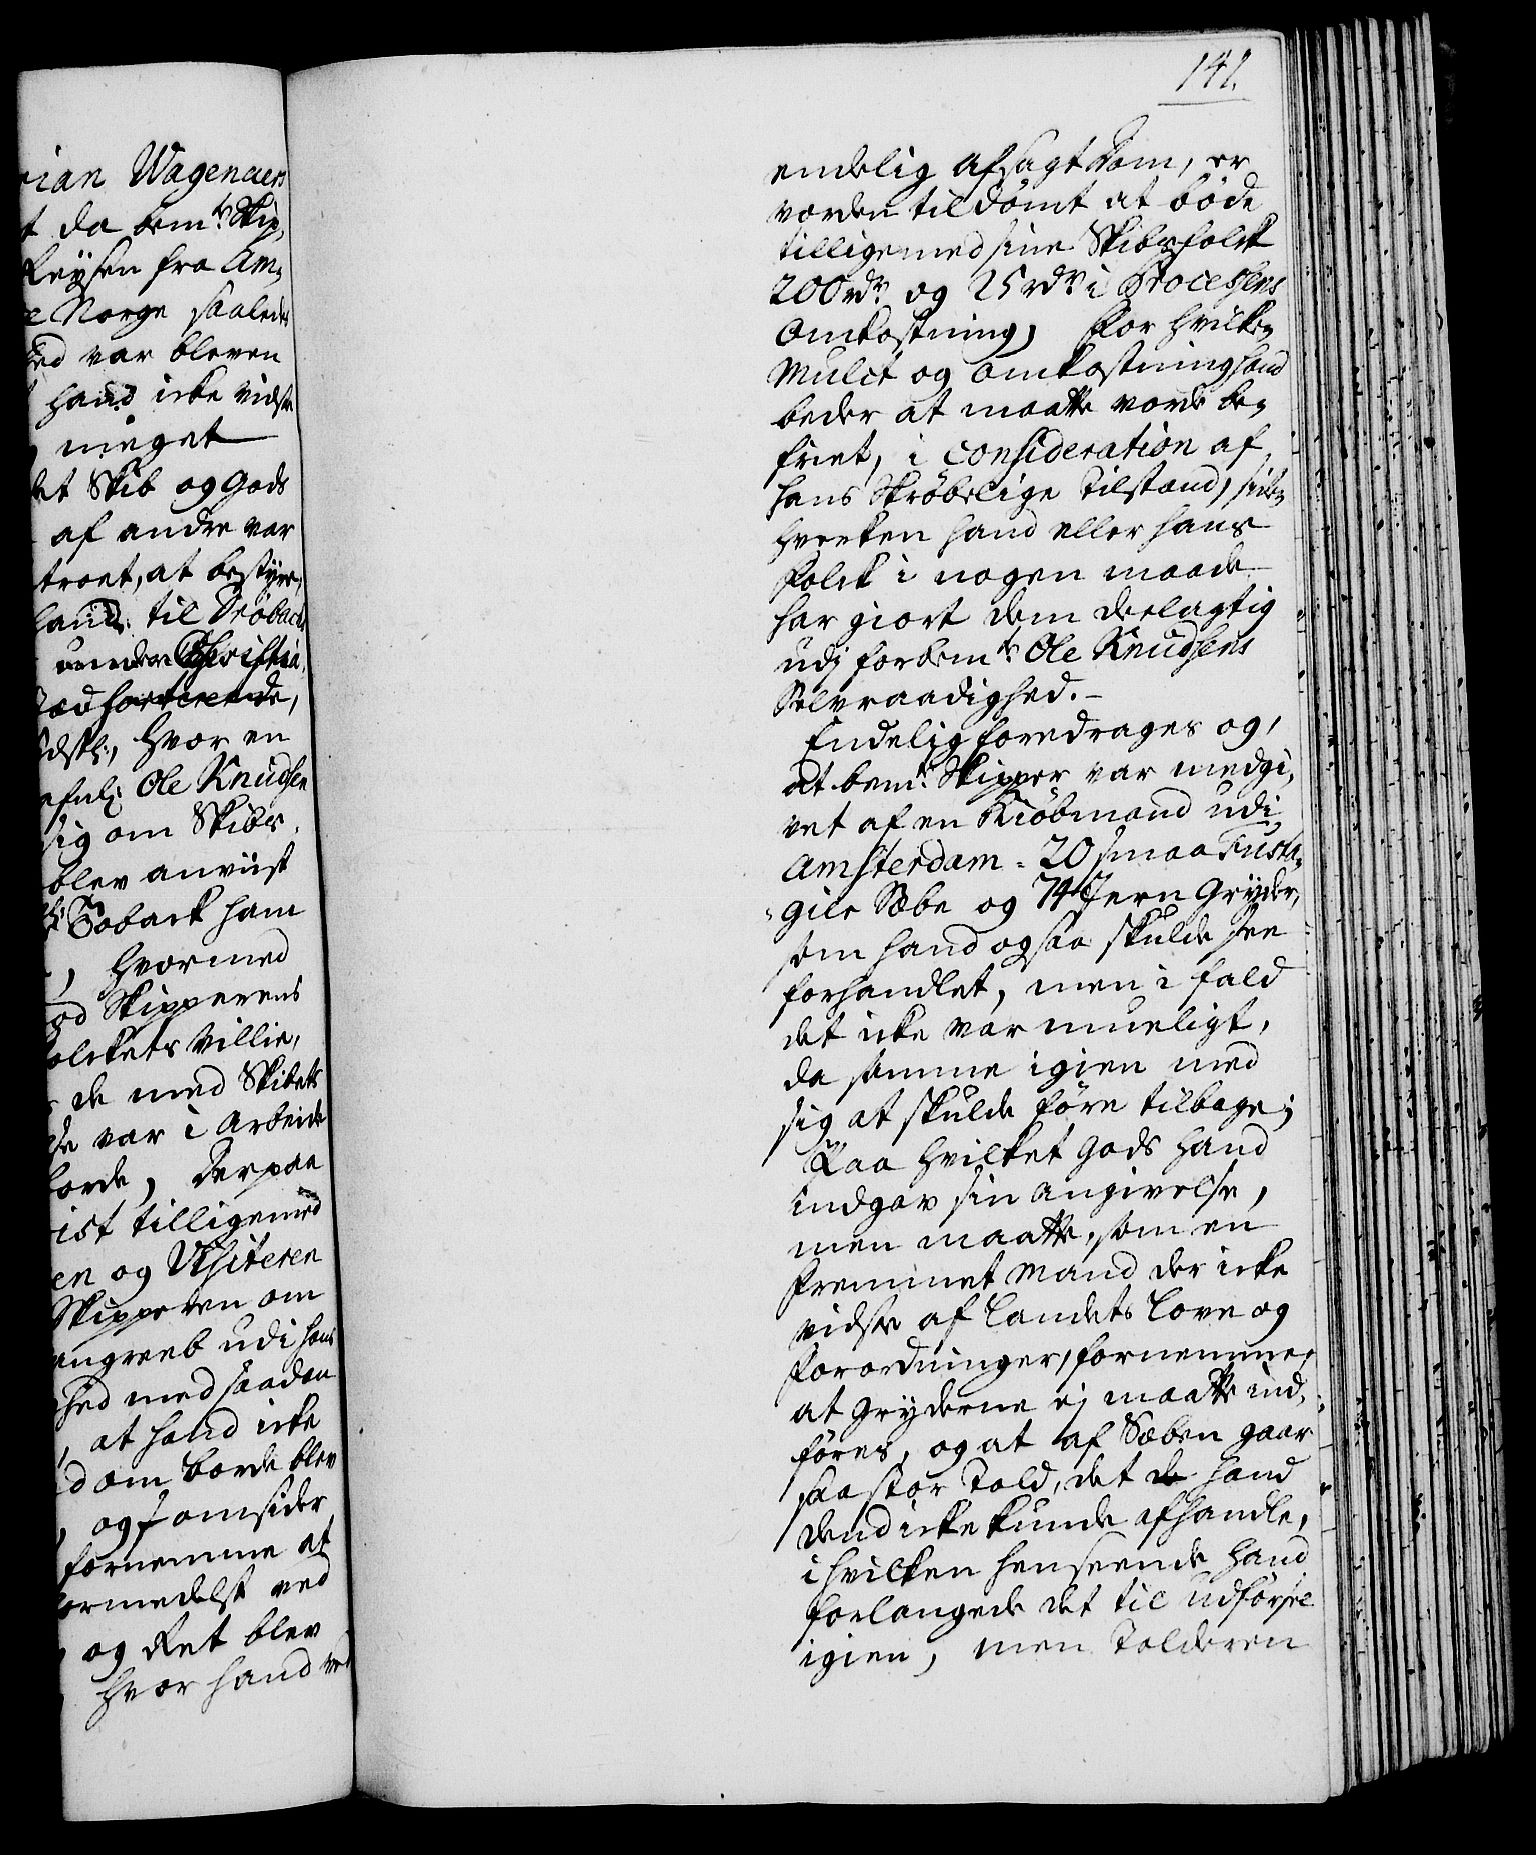 rian Wagenaers
t da bemte Skip-
Reysen fra Am-
e Norge saaledes
hed var bleven
hand icke vidste
meget
det Skib og Gods
af andre var
troet, at bestyre,
hand til Drøbach
under Christia-
havende,
hvor en
Ole Knudsen
sig om Skibs
blev anviist
Søback ham
, hvormed
od Skipperens
olckets Villie,
de med Skibets
de var i Arbeide
borde, Derpaa
ist tilligemed
en og Visiteren
Skipperen om
angreeb udi hans
hed med saadan
, at hand icke
d om borde blev
, og omsider
fornemme at
formedelst ved
og Ret blev
hvor hand ved
141.
endelig afsagt Dom, er
vorden tildømt at bøde
tilligemed sine Skibsfolck
200 rdr. og 25 rdr. i Processens
Omkostning, For hvilken
Mulct og omkostning hand
beder at maatte vorde be-
friet, i consideration af
hans Skrøbelige Tilstand, siden
hverken hand eller hans
Folck i nogen maade
har giort dem deelagtig
udj forbemte Ole Knudsens
Selvraadighed.-
Endelig foredrages og,
at bemte Skipper var medgi-
vet af en Kiøbmand udi
Amsterdam = 20 smaa Fusta-
gier Sæbe og 74 Jern Gryder,
som hand ogsaa skulde see
forhandlet, men i fald
det icke var mueligt,
da samme igien med
sig at skulde føre tilbage;
Paa hvilket Gods hand
indgav sin angivelse,
men maatte, som en
fremmet Mand der icke
vidste af Landets Love og
Forordninger, fornemme,
at Gryderne ej maatte ind-
føres, og at af Sæben gaar
saa stor Told, det de hand
dend icke kunde afhandle,
i hvilken henseende hand
forlangede det til udførsel
igien, men Tolderen